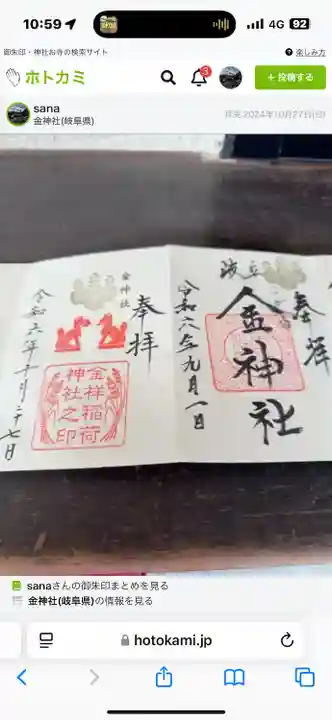 10:59
4G 92
御朱印・神社お寺の検索サイト
? 楽しみ方
ホトカミ
3
+ 投稿する
sana
金神社(岐阜県)
拝受:2024年10月27日(日)
奉拝
岐阜
金神社
令和六年九月一日
奉拝
金神社
金祥稲荷
神社之印
令和六年十月二十七日
sanaさんの御朱印まとめを見る
金神社(岐阜県)の情報を見る
hotokami.jp